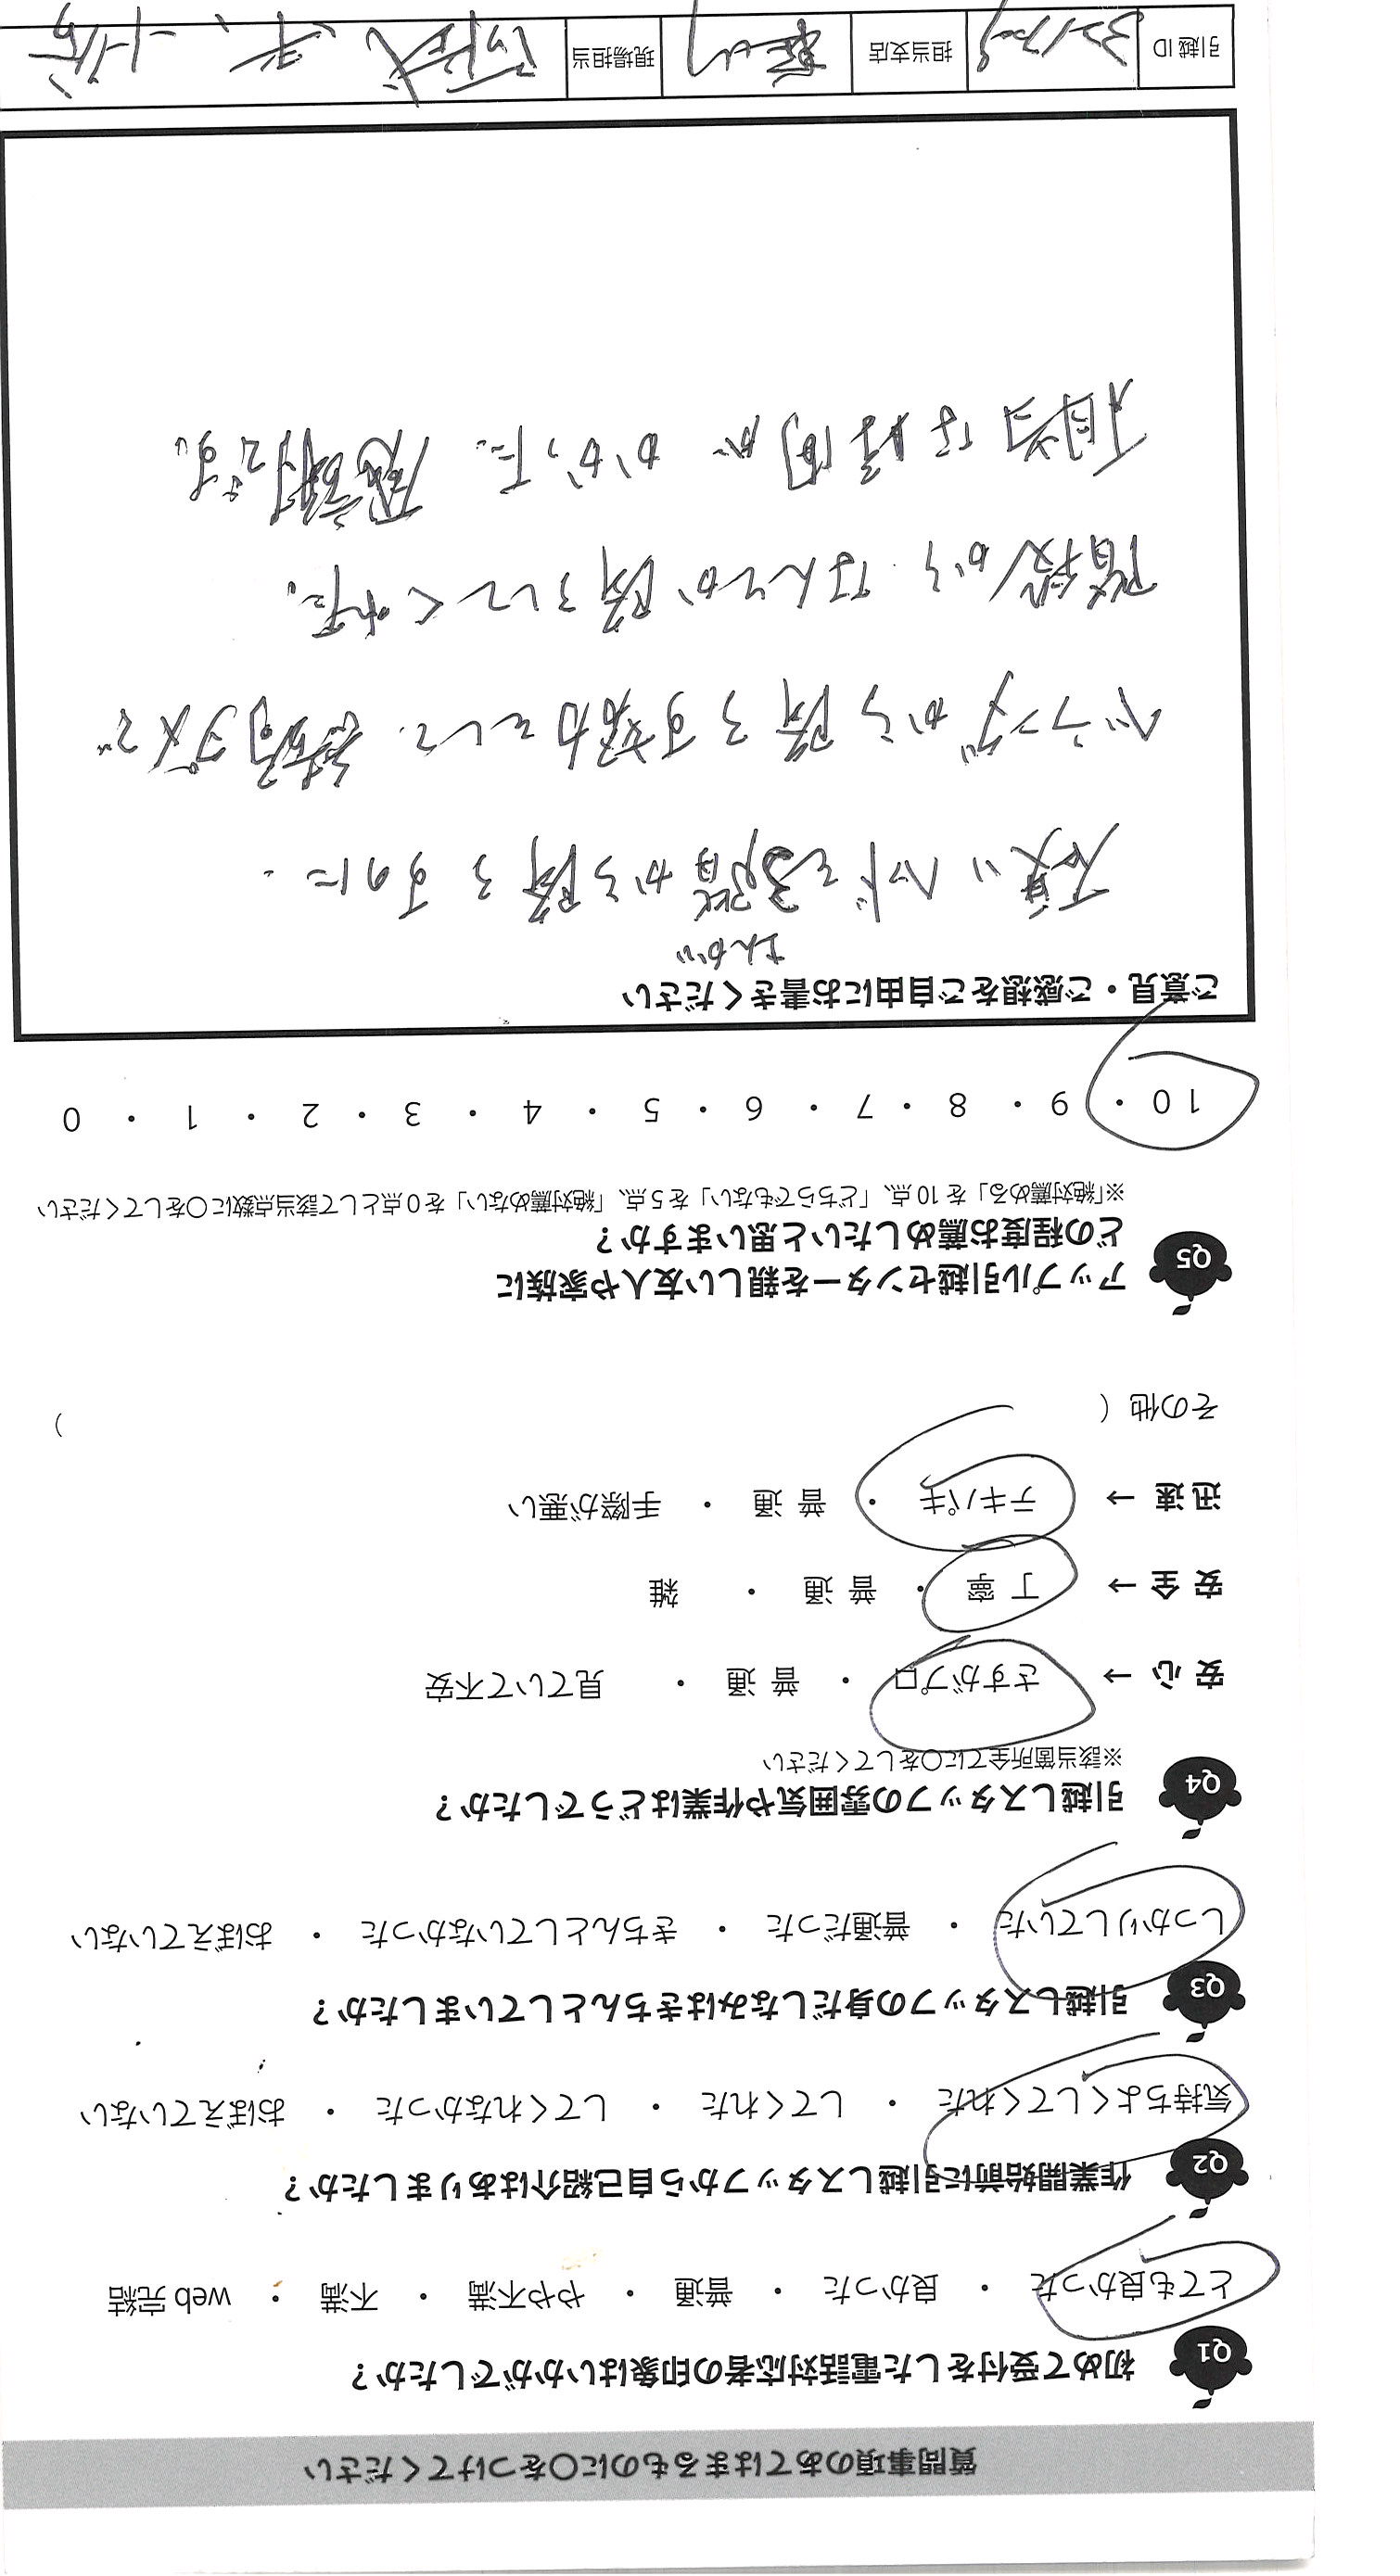 質問事項のあてはまるものに○をつけてください
Q1 初めて受付をした電話対応者の印象はいかがでしたか？
とても良かった ・ 良かった ・ 普通 ・ やや不満 ・ 不満 ・ web 完結
Q2 作業開始前に引越しスタッフから自己紹介はありましたか？
気持ちよくしてくれた ・ してくれた ・ してくれなかった ・ おぼえていない
Q3 引越しスタッフの身だしなみはきちんとしていましたか？
しっかりしていた ・ 普通だった ・ きちんとしていなかった ・ おぼえていない
Q4 引越しスタッフの雰囲気や作業はどうでしたか？
※該当箇所全てに○をしてください
安 心 → さすがプロ ・ 普 通 ・ 見ていて不安
安 全 → 丁 寧 ・ 普 通 ・ 雑
迅 速 → テキパキ ・ 普 通 ・ 手際が悪い
その他（ ）
Q5 アップル引越センターを親しい友人や家族に
どの程度お薦めしたいと思いますか？
※「絶対薦める」を 10 点、「どちらでもない」を 5 点、「絶対薦めない」を 0 点として該当点数に○をしてください
10 ・ 9 ・ 8 ・ 7 ・ 6 ・ 5 ・ 4 ・ 3 ・ 2 ・ 1 ・ 0
ご意見・ご感想をご自由にお書きください
さんがい
ベッドを3階から降ろすのに、
ベランダから降ろす努力をして、結局ダメで
階段から、なんとか降ろしてくれた。
相当な時間がかかった。感謝です。
引越 ID 担当支店 現場担当